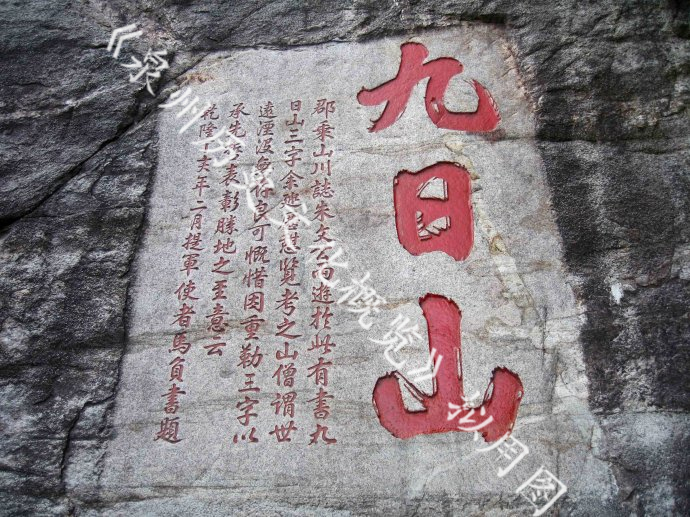 九日山
郡乘山川誌朱文公同遊於此有書九
日山三字余巡歷懇覽考之山僧謂世
遠湮沒無存良可慨惜因重勒三字以
承先哲表彰勝地之至意云
乾隆丁亥年二月提軍使者馬負書題
《泉州 概览》 用图